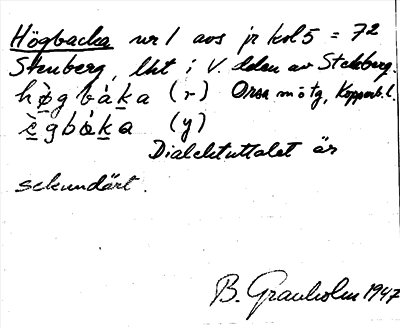 Högbacka nr 1 avs jr kol 5 = 72
Stenberg, lht i V. delen av Stckberg.
hø̀gbàka (r) Orsa m o tg, Kopparb. l.
ègbàka (y)
Dialektuttalet är
sekundärt.
B. Granholm 1947